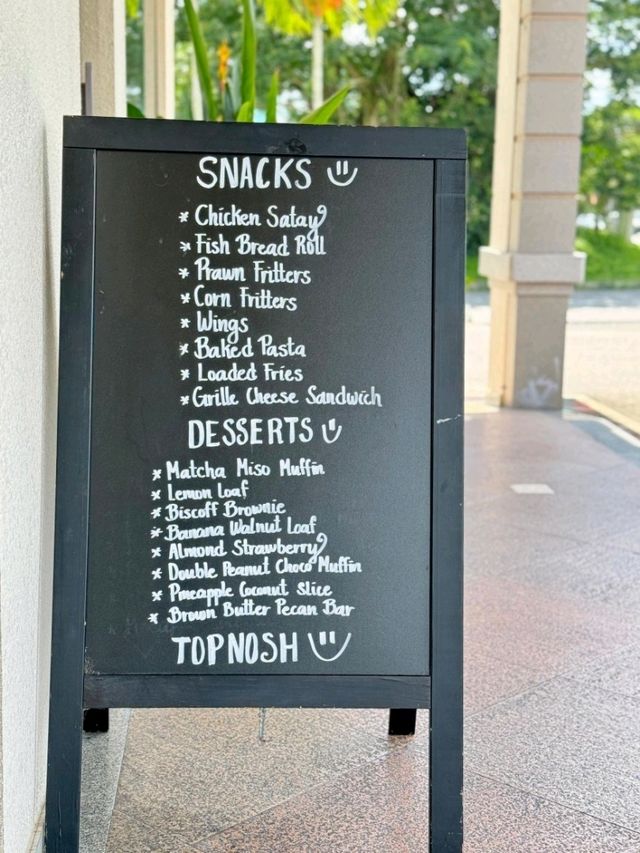 SNACKS
* Chicken Satay
* Fish Bread Roll
* Prawn Fritters
* Corn Fritters
* Wings
* Baked Pasta
* Loaded Fries
* Grille Cheese Sandwich
DESSERTS
* Matcha Miso Muffin
* Lemon Loaf
* Biscoff Brownie
* Banana Walnut Loaf
* Almond Strawberry
* Double Peanut Choco Muffin
* Pineapple Coconut Slice
* Brown Butter Pecan Bar
TOPNOSH